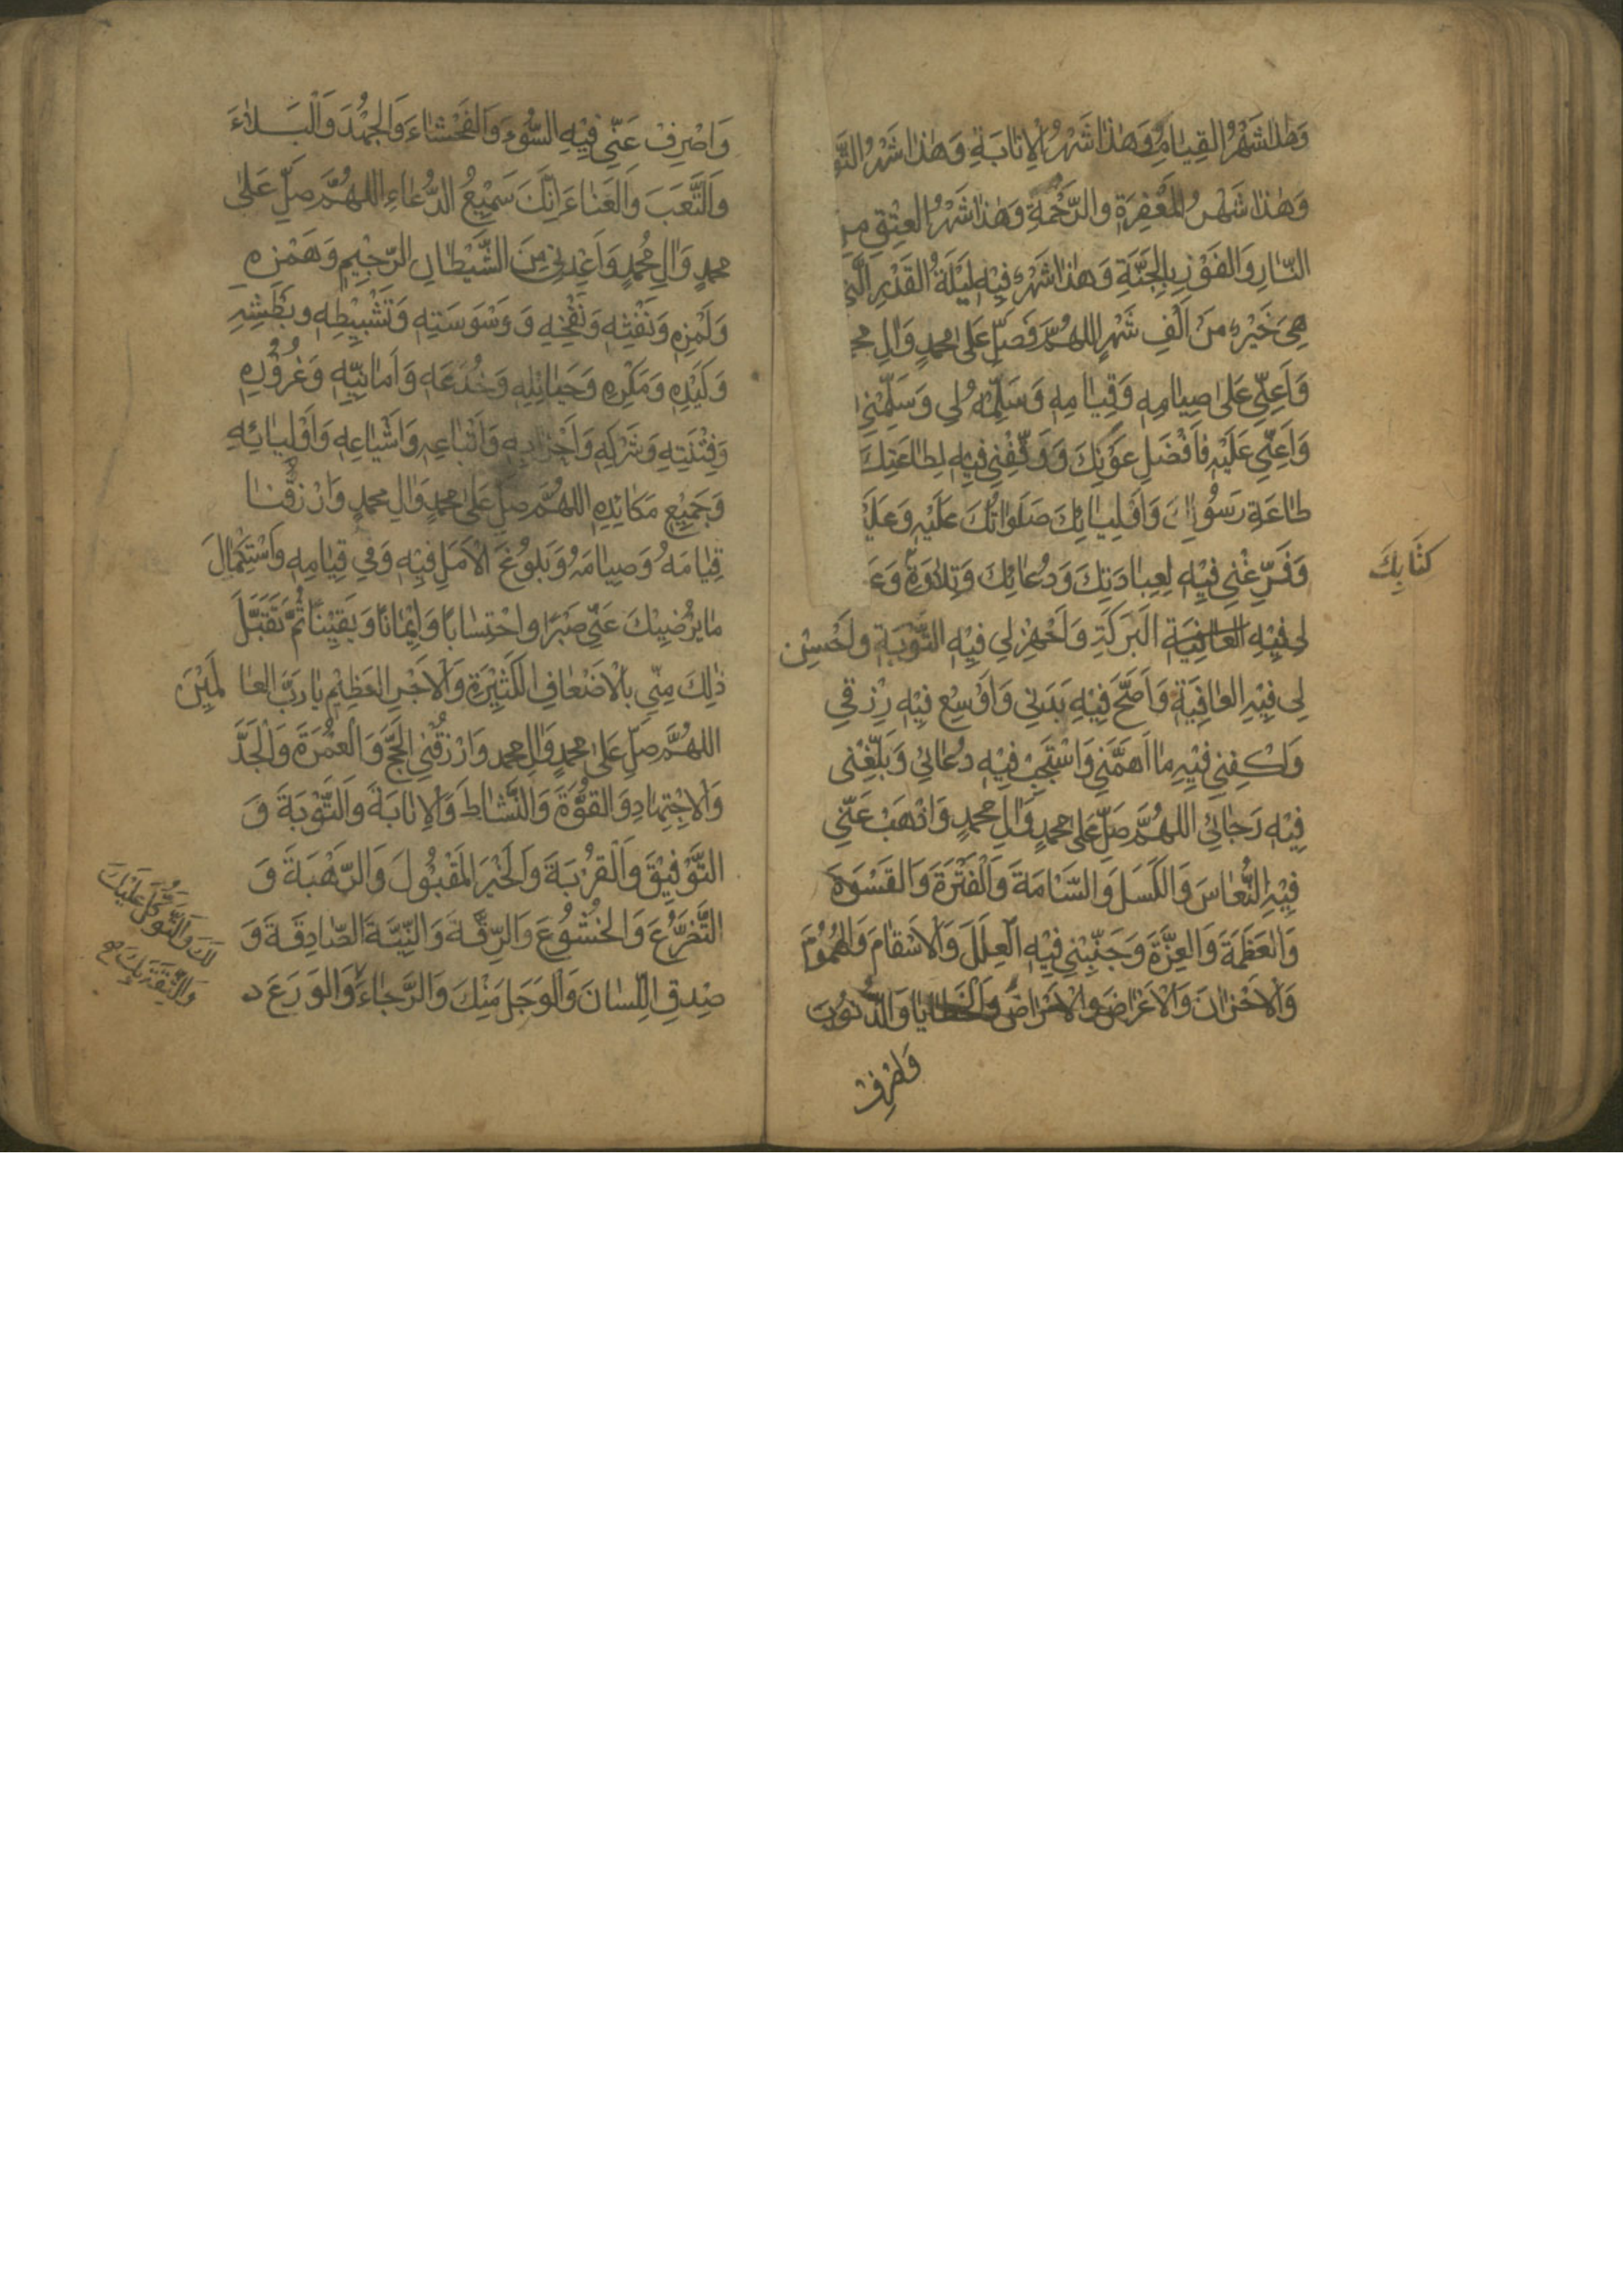 وَهٰذَا شَهْرُ القِيٰامِ وَهٰذَا شَهْرُ الْاِنٰابَةِ وَهٰذَا شَهْرُ التَّو
وَهٰذَا شَهْرُ المَغْفِرَةِ والرَّحْمَةِ وَهٰذَا شَهْرُ العِتْقِ مِنَ
النّٰارِ وَالفَوْزِ بِالجَنَّةِ وَهٰذَا شَهْرٌ فِيْهِ لَيْلَةُ القَدْرِ الَّتِي
هِىَ خَيْرٌ مِنْ اَلْفِ شَهْرٍ اللهُمَّ فَصَلِّ عَلىٰ محمدٍ وَاٰلِ مح
وَاَعِنِّي عَلىٰ صِيٰامِهِ وَقِيٰامِهِ وَسَلِّمْهُ لِي وَسَلِّمْنِي
وَاَعِنِّي عَلَيْهِ بِاَفْضَلِ عَوْنِكَ وَوَفِّقْنِي فِيهِ لِطٰاعَتِكَ
طٰاعَةِ رَسُوْلِكَ وَاَوْلِيٰائِكَ صَلَوٰاتُكَ عَلَيْهِ وَعَلَيْ
وَفَرِّغْنِي فِيْهِ لِعِبٰادَتِكَ وَدُعٰائِكَ وَتِلٰاوَةِ وَعَ
كِتَابِكَ
لِي فِيْهِ العٰافِيَة البَرَكَةِ وَاَحْرِزْ لِي فِيْهِ التَّوْبَةِ واَحْسِنْ
لِي فِيْهِ العٰافِيَةِ وَاَصِّحَ فِيْهِ بَدَنِي وَاَوْسِعْ فِيْهِ رِزْقِي
وَاكْفِنِي فِيْهِ مٰا اَهَمَّنِي وَاسْتَجِبْ فِيْهِ دُعٰائِي وَبَلِّغْنِى
فِيْهِ رَجٰائِي اللهُمَّ صَلِّ عَلىٰ محمدٍ وَاٰلِ محمدٍ وَاذْهَبْ عَنِّي
فِيْهِ النُّعٰاسَ وَالكَسَلَ وَالسَّئٰامَةَ وَالْفَتْرَةَ وَالقَسْوَةَ
وَالعَظَمَةَ وَالعِزَّةَ وَجَنِّبْنِي فِيْهِ الْعِلَلَ وَالْاَسْقٰامَ وَالهُمُوْمَ
وَالْاَحْزٰانَ وَالْاَعْرٰاضَ والْاَمْرٰاضَ وَالخَطٰايٰا وَالذُّنُوْبَ
وَاصْرِفْ
وَاصْرِفْ عَنِّي فِيْهِ السُّوْءَ وَالفَحْشٰاءَ وَالجَهْدَ وَالْبَلٰاءَ
وَالتَّعَبَ وَالعَنٰاءَ اِنَّكَ سَمِيْعُ الدُّعٰاءِ اللهُمَّ صَلِّ عَلىٰ
محمدٍ وَاٰلِ مُحمدٍ وَاَعِذْنِي مِنَ الشَّيْطٰانِ الرَّجِيْمِ وَهَمْزِهِ
وَلَمْزِهِ وَنَفْثِهِ وَنَفْخِهِ وَوَسْوَسَتِهِ وَتَثْبِيْطِهِ وبَطْشِهِ
وَكَيْدِهِ وَمَكْرِهِ وَحَبٰائِلِهِ وَخُدَعِهِ وَاَمٰانِيِّهِ وَغُرُوْرِهِ
وَفِتْنَتِهِ وَشَرَكِهِ وَاَحْزٰابِهِ وَاَتْبٰاعِهِ وَاَشْيٰاعِهِ وَاَوْلِيٰائِهِ
وَجَمِيْعِ مَكٰائِدِهِ اللهُمَّ صَلِّ عَلىٰ محمدٍ وَاٰلِ محمدٍ وَارْزُقْنٰا
قِيٰامَهُ وَصِيٰامَهُ وَبَلُوْغَ الْاَمَلِ فِيْهِ وَفِي قِيٰامِهِ وَاسْتِكْمٰالَ
مٰا يُرْضِيْكَ عَنِّي صَبْرًا واحْتِسٰابًا وَاِيْمٰانًا وَيَقِيْنًا ثُمَّ تَقَبَّلْ
ذٰلِكَ مِنِّي بِالْاَضْعٰافِ الكَثِيْرَةِ وَالْاَجْرِ العَظِيْمِ يٰا رَبَّ العٰالَمِيْنَ
اللهُمَّ صَلِّ عَلىٰ محمدٍ وَاٰلِ محمد وَارْزُقْنِي الحَجَّ وَالعُمْرَةَ وَالْجَدَّ
وَالْاِجْتِهٰادِ وَالقُوَّةَ وَالنَّشٰاطَ وَالْاِنٰابَةَ وَالتَّوْبَةَ وَ
التَّوْفِيْقَ وَالْقُرْبَةَ وَالخَيْرَ المَقْبُولَ وَالرَّهْبَةَ وَ
التَّضَرُّعَ وَالخُشُوْعَ وَالرِّقَّةَ وَالنِّيَّةَ الصّٰادِقَةَ وَ
صِدْقِ اللِّسٰانَ وَالْوَجَلَ مِنْكَ وَالرَّجٰاءَ وَالوَرَعَ د
لَكَ وَالتَّوَكُّلَ عَلَيْكَ
وَالثِّقَةَ بِكَ